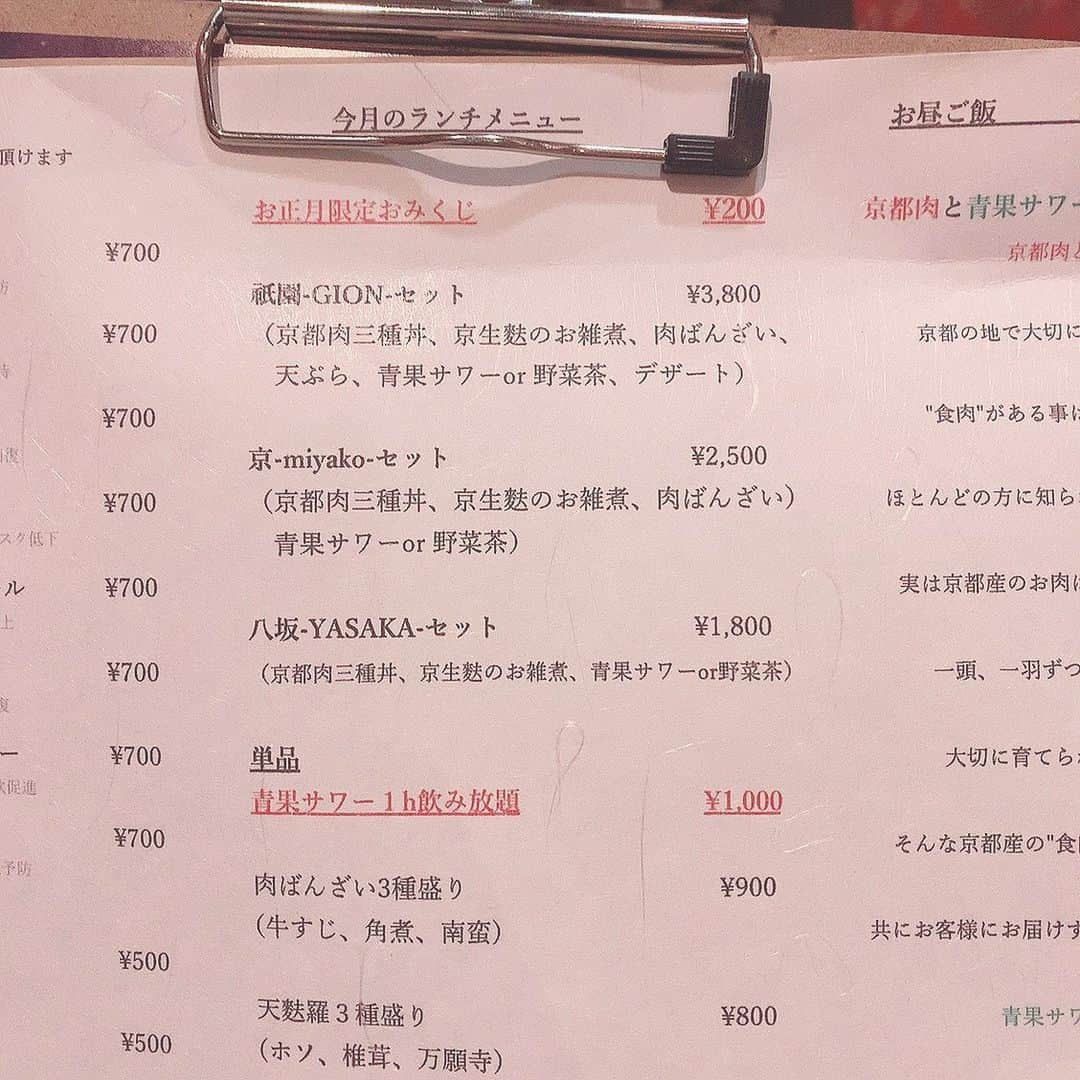 今月のランチメニュー
お正月限定おみくじ ¥200
祇園-GION-セット ¥3,800
（京都肉三種丼、京生麩のお雑煮、肉ばんざい、
天ぷら、青果サワーor 野菜茶、デザート）
京-miyako-セット ¥2,500
（京都肉三種丼、京生麩のお雑煮、肉ばんざい）
青果サワーor 野菜茶）
八坂-YASAKA-セット ¥1,800
（京都肉三種丼、京生麩のお雑煮、青果サワーor野菜茶）
単品
青果サワー１h飲み放題 ¥1,000
肉ばんざい3種盛り ¥900
（牛すじ、角煮、南蛮）
天麩羅３種盛り ¥800
（ホソ、椎茸、万願寺）
頂けます
¥700
¥700
¥700
¥700
スク低下
ル ¥700
上
¥700
復
ー ¥700
促進
¥700
予防
¥500
¥500
お昼ご飯
京都肉と青果サワー
京都肉と
京都の地で大切に
"食肉"がある事は
ほとんどの方に知ら
実は京都産のお肉は
一頭、一羽ずつ
大切に育てら
そんな京都産の"食
共にお客様にお届けす
青果サワ